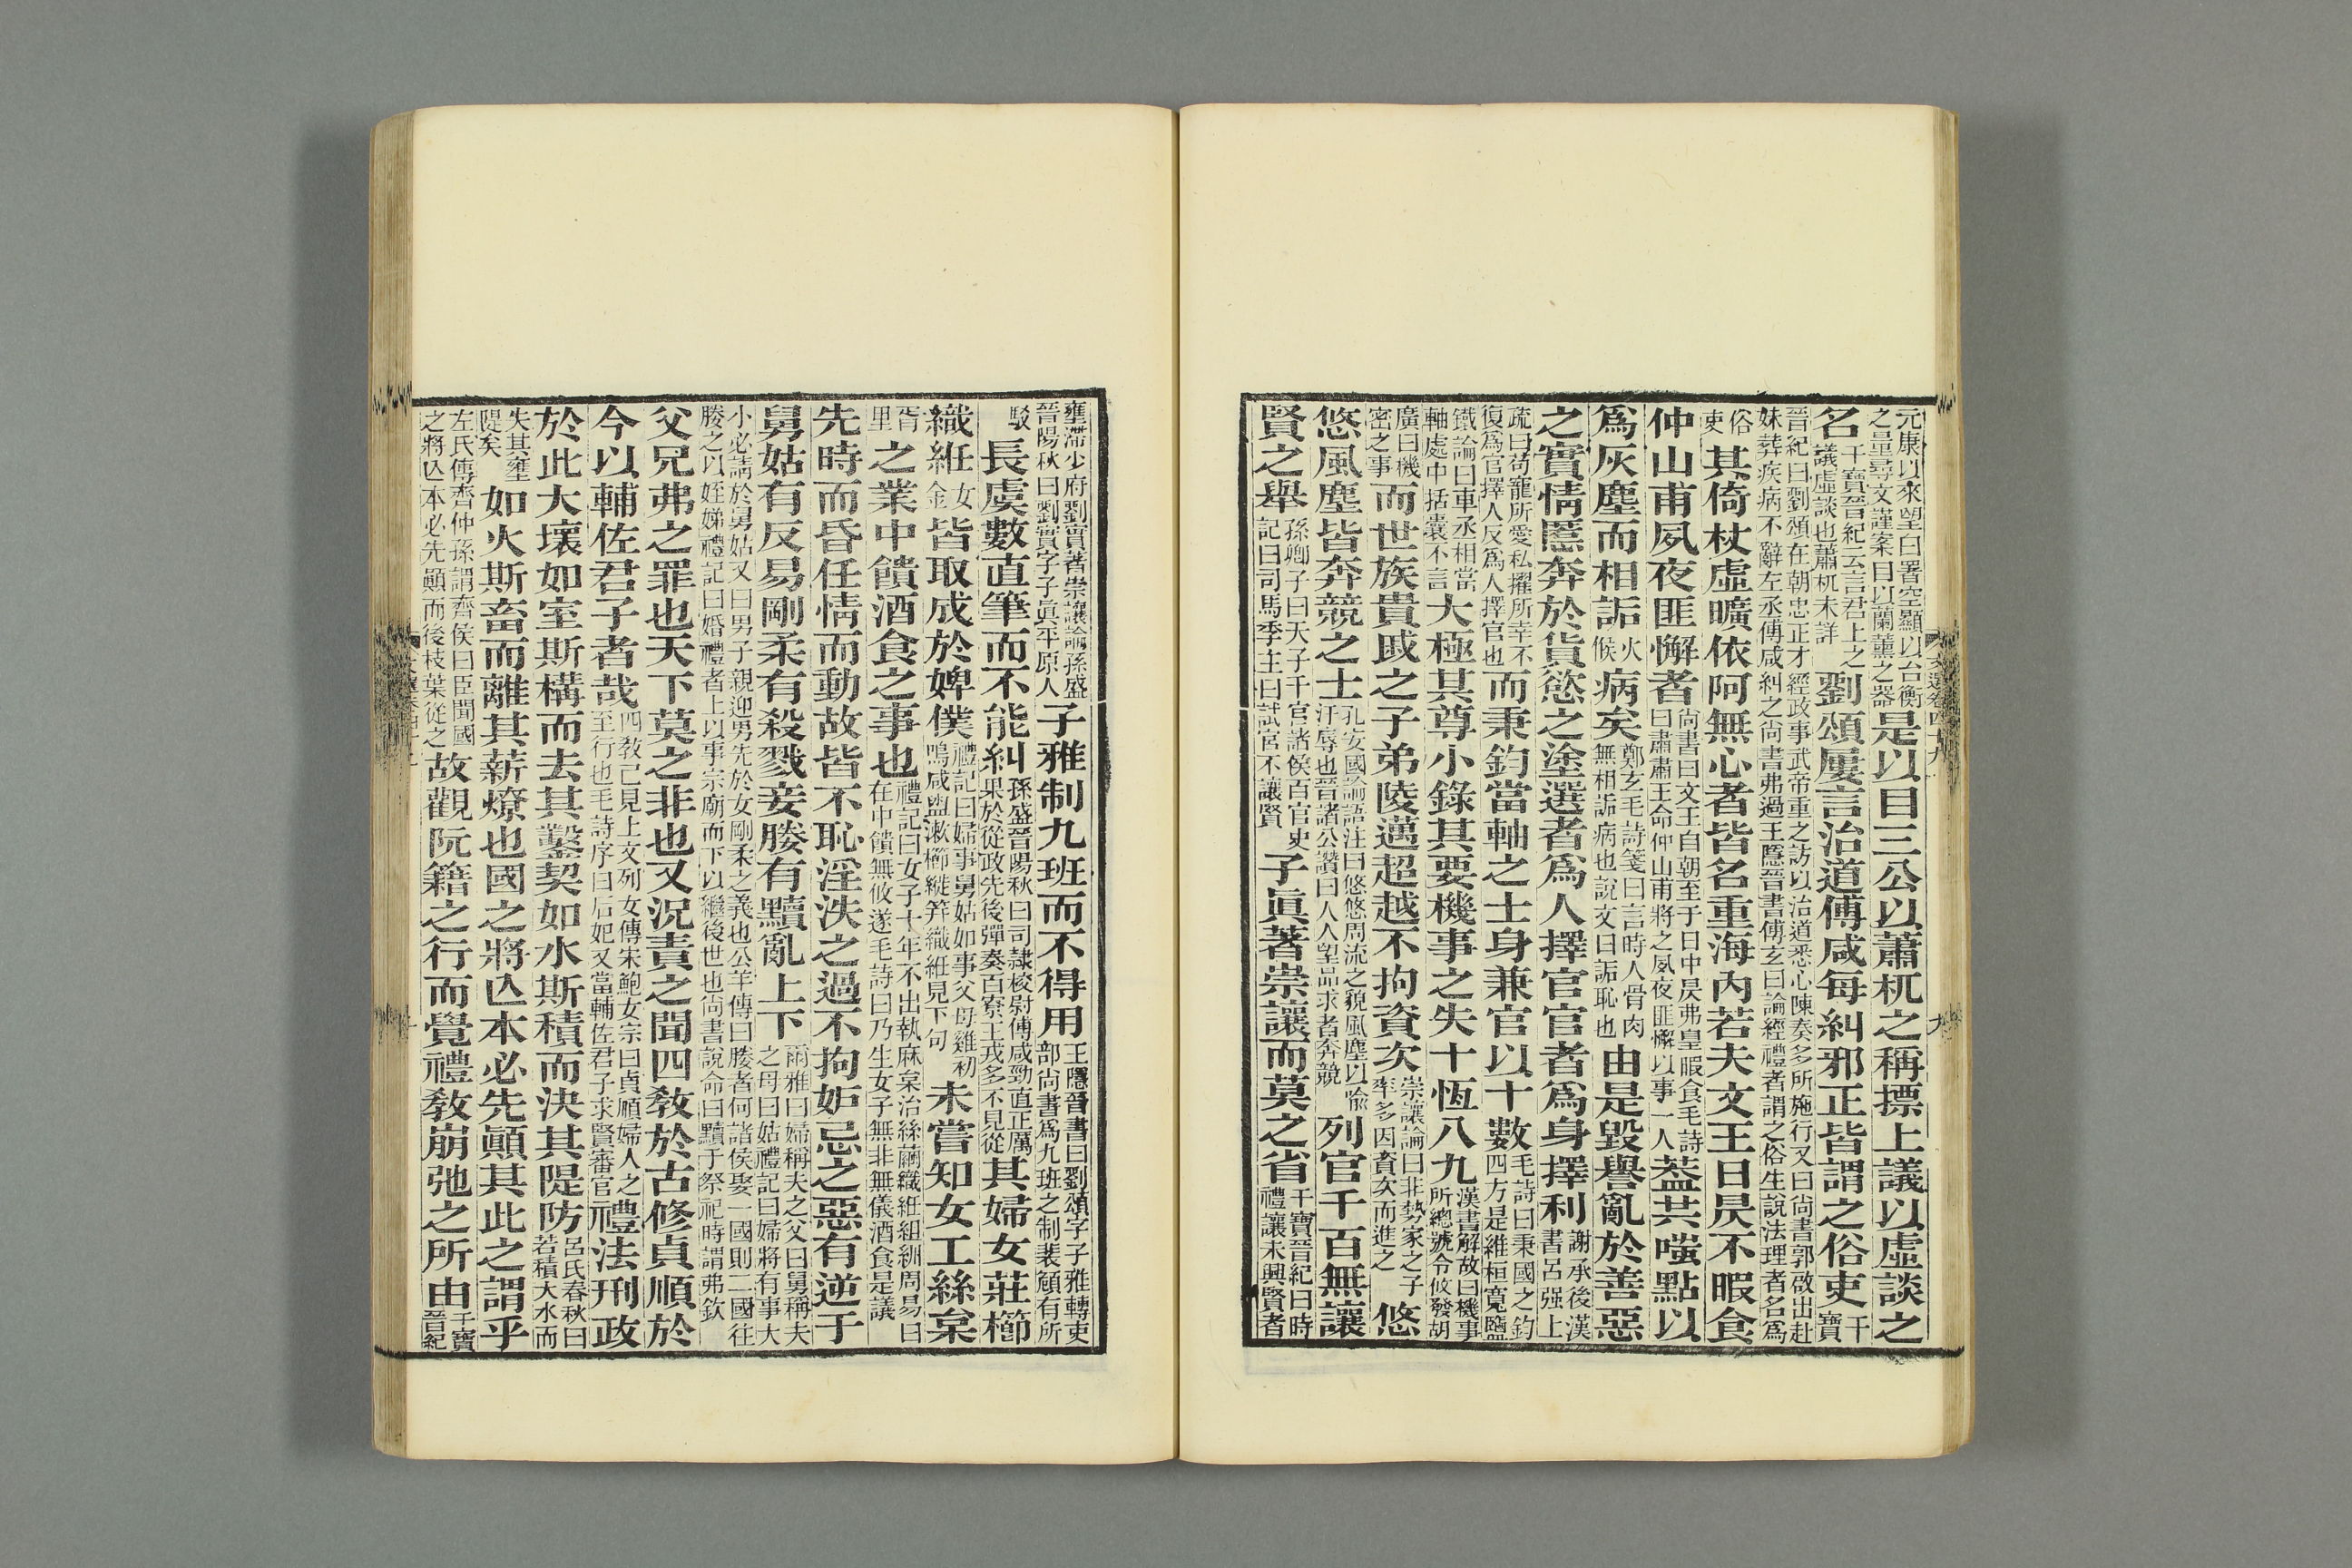 元康以來望白署空顯以台衡之量尋文謹案目以蘭薰之器是以目三公以蕭杌之稱摽上議以虛談之
名干寶晉紀云言君上之議虛談也蕭杌未詳劉頌屢言治道傅咸每糾邪正皆謂之俗吏干寶
晉紀曰劉頌在朝忠正才經政事武帝重之訪以治道悉心陳奏多所施行又曰尚書郭啟出赴妹葬疾病不辭左丞傅咸糾之尚書弗過王隱晉書傅玄曰論經禮者謂之俗生說法理者名爲
俗吏其倚杖虛曠依阿無心者皆名重海內若夫文王日昃不暇食
仲山甫夙夜匪懈者尚書曰文王自朝至于日中昃弗皇暇食毛詩曰肅肅王命仲山甫將之夙夜匪懈以事一人葢共嗤點以
爲灰塵而相詬火候病矣鄭玄毛詩箋曰言時人骨肉無相詬病也說文曰詬恥也由是毀譽亂於善惡
之實情慝奔於貨慾之塗選者爲人擇官官者爲身擇利謝承後漢書呂强上
疏曰苟寵所愛私擢所幸不復爲官擇人反爲人擇官也而秉鈞當軸之士身兼官以十數毛詩曰秉國之鈞四方是維桓寬鹽
鐵論曰車丞相當軸處中括囊不言大極其尊小錄其要機事之失十恆八九漢書解故曰機事所總號令攸發胡
廣曰機密之事而世族貴戚之子弟陵邁超越不拘資次崇讓論曰非勢家之子率多因資次而進之悠
悠風塵皆奔競之士孔安國論語注曰悠悠周流之貌風塵以喻汙辱也晉諸公讚曰人人望品求者奔競列官千百無讓
賢之舉孫卿子曰天子千官諸侯百官史記曰司馬季主曰試官不讓賢子眞著崇讓而莫之省干寶晉紀曰時禮讓未興賢者
壅滯少府劉寔著崇讓論孫盛晉陽秋曰劉寔字子眞平原人子雅制九班而不得用王隱晉書曰劉頌字子雅轉吏部尚書爲九班之制裴頠有所
駮長虞數直筆而不能糾孫盛晉陽秋曰司隷校尉傅咸勁直正厲果於從政先後彈奏百寮王戎多不見從其婦女莊櫛
織紝女金皆取成於婢僕禮記曰婦事舅姑如事父母雞初鳴咸盥漱櫛縰笄織紝見下句未嘗知女工絲枲
胥里之業中饋酒食之事也禮記曰女子十年不出執麻枲治絲繭織紝組紃周易曰在中饋無攸遂毛詩曰乃生女子無非無儀酒食是議
先時而昏任情而動故皆不恥淫泆之過不拘妒忌之惡有逆于
舅姑有反易剛柔有殺戮妾媵有黷亂上下爾雅曰婦稱夫之父曰舅稱夫之母曰姑禮記曰婦將有事大
小必請於舅姑又曰男子親迎男先於女剛柔之義也公羊傳曰媵者何諸侯娶一國則二國往媵之以姪娣禮記曰婚禮者上以事宗廟而下以繼後世也尚書說命曰黷于祭祀時謂弗欽
父兄弗之罪也天下莫之非也又況責之聞四敎於古修貞順於
今以輔佐君子者哉四敎已見上文列女傳宋鮑女宗曰貞順婦人之至行也毛詩序曰后妃又當輔佐君子求賢審官禮法刑政
於此大壞如室斯構而去其鑿契如水斯積而決其隄防呂氏春秋曰若積大水而
失其壅隄矣如火斯畜而離其薪燎也國之將亡本必先顚其此之謂乎
左氏傳齊仲孫謂齊侯曰臣聞國之將亡本必先顚而後枝葉從之故觀阮籍之行而覺禮敎崩弛之所由干寶晉紀
文選卷四十九
九